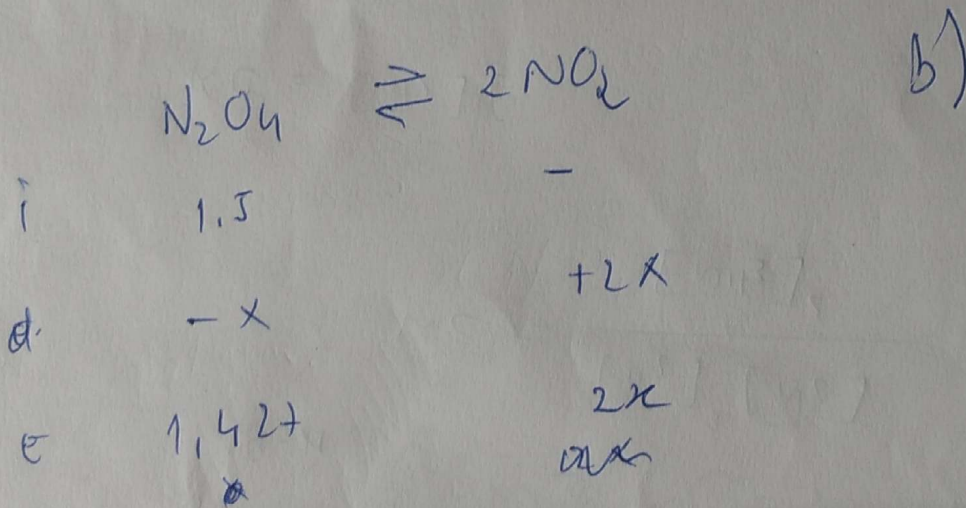 N₂O₄ ⇌ 2NO₂ b)
i 1.5 -
d. - x +2x
E 1,427 2x